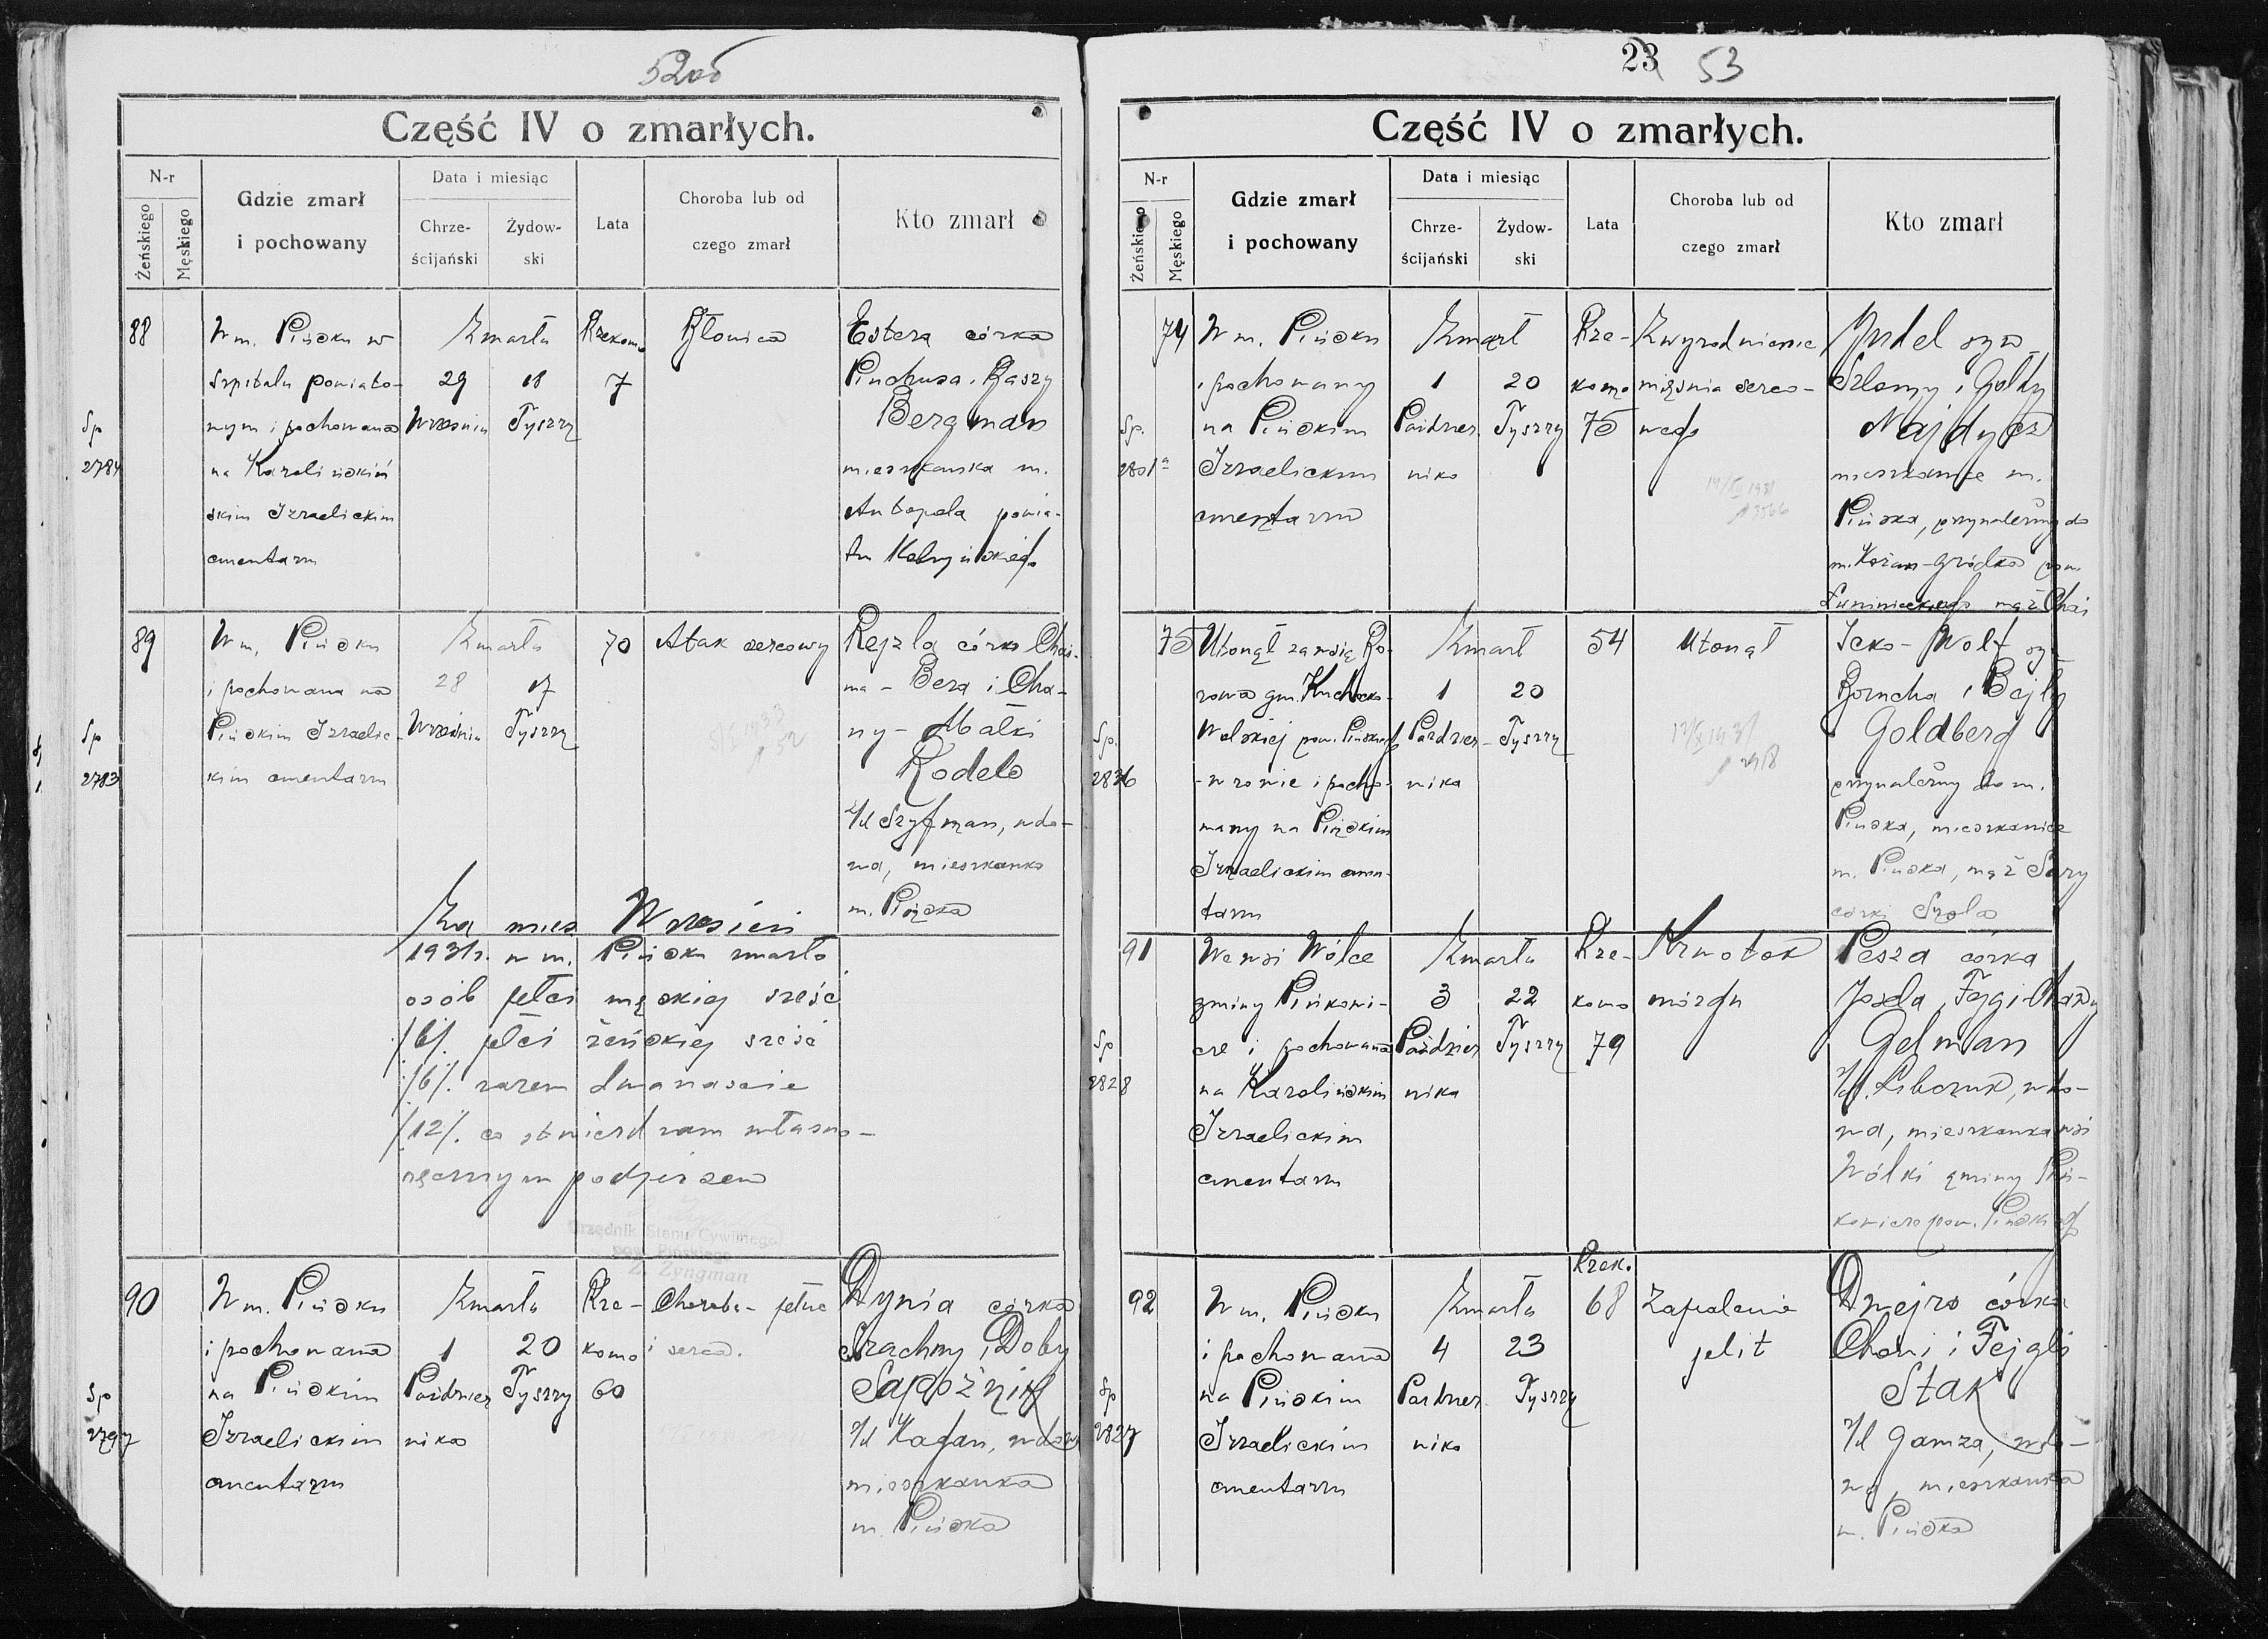 52об
Część IV o zmarłych.
N-r
Żeńskiego
Męskiego
Gdzie zmarł
i pochowany
Data i miesiąc
Chrze-
ścijański
Żydow-
ski
Lata
Choroba lub od
czego zmarł
Kto zmarł
88
Sp
2784
W m. Pińsku w
Szpitalu powiato-
wym i pochowana
na Karolińskiń
skim Izraelickim
cmentarzu
Zmarła
29
Września
18
Tyszry
Rzekomo
7
Błonica
Estera córka
Pinchusa i Baszy
Bergman
mieszkanka m.
Antopola powia-
tu Kobryńskiego
89
Sp
2783
W m. Pińsku
i pochowana na
Pińskim Izraelic-
kim cmentarzu
Zmarła
28
Września
17
Tyszry
70
Atak sercowy
Rejzla córka Chai-
ma-Bera i Cha-
ny-Małki
Kodelo
z/d Szyfman, wdo-
wa, mieszkanka
m. Pińska
Za mies Wrzesień
1931 r. w m. Pińsku zmarło
osób płci męskiej sześć
/6/. płci żeńskiej sześć
/6/. razem dwanaście
/12/. co stwierdzam własno-
ręcznym podpisem
Urzędnik Stanu Cywilnego
pow. Pińskiego
Z. Zyngman
90
Sp
2797
W m. Pińsku
i pochowana
na Pińskim
Izraelickim
cmentarzu
Zmarła
1
Paździer
nika
20
Tyszry
Rze-
komo
60
Choroba płuc
i serca.
Dynia córka
Srachmy i Doby
Sapożnik
z/d Kagan, wdowa
mieszkanka
m. Pińska
23 53
Część IV o zmarłych.
N-r
Żeńskiego
Męskiego
Gdzie zmarł
i pochowany
Data i miesiąc
Chrze-
ścijański
Żydow-
ski
Lata
Choroba lub od
czego zmarł
Kto zmarł
74
Sp.
2801a
W m. Pińsku
i pochowany
na Pińskim
Izraelickim
cmentarzu
Zmarł
1
Paździer
nika
20
Tyszry
Rze-
komo
75
Zwyrodnienie
mięśnia serco-
wego
Judel syn
Szlomy i Gołdy
Najdycz
mieszkaniec m.
Pińska, przynależny do
m. Kożan-Gródka pow.
Łuninieckiego mąż Chai
75
Sp.
2836
Utonął za wsią Bo-
rowa gm. Kuchecko-
Wolskiej pow. Pińskiego
w rowie i pocho-
wany na Pińskim
Izraelickim cmen-
tarzu
Zmarł
1
Paździer-
nika
20
Tyszry
54
Utonął
Icko-Wolf syn
Borucha i Bejly
Goldberg
przynależny do m.
Pińska, mieszkaniec
m. Pińska, mąż Sary
córki Szola
91
Sp
2828
We wsi Wólce
gminy Pińkowi-
cze i pochowana
na Karolińskim
Izraelickim
cmentarzu
Zmarła
3
Paździer
nika
22
Tyszry
Rze-
komo
79
Krwotok
mózgu
Pesza córka
Josela i Fejgi-Chawy
Gelman
z/d. Libczuk, wdo-
wa, mieszkanka wsi
Wólki gminy Piń-
kowicze pow. Pińskiego
92
Sp
2827
W m. Pińsku
i pochowana
na Pińskim
Izraelickim
cmentarzu
Zmarła
4
Paździer
nika
23
Tyszry
Rzek.
68
Zapalenie
jelit
Dwejra córka
Choni i Fejgli
Stak
z/d Gamza, wdo-
wa, mieszkanka
m. Pińska